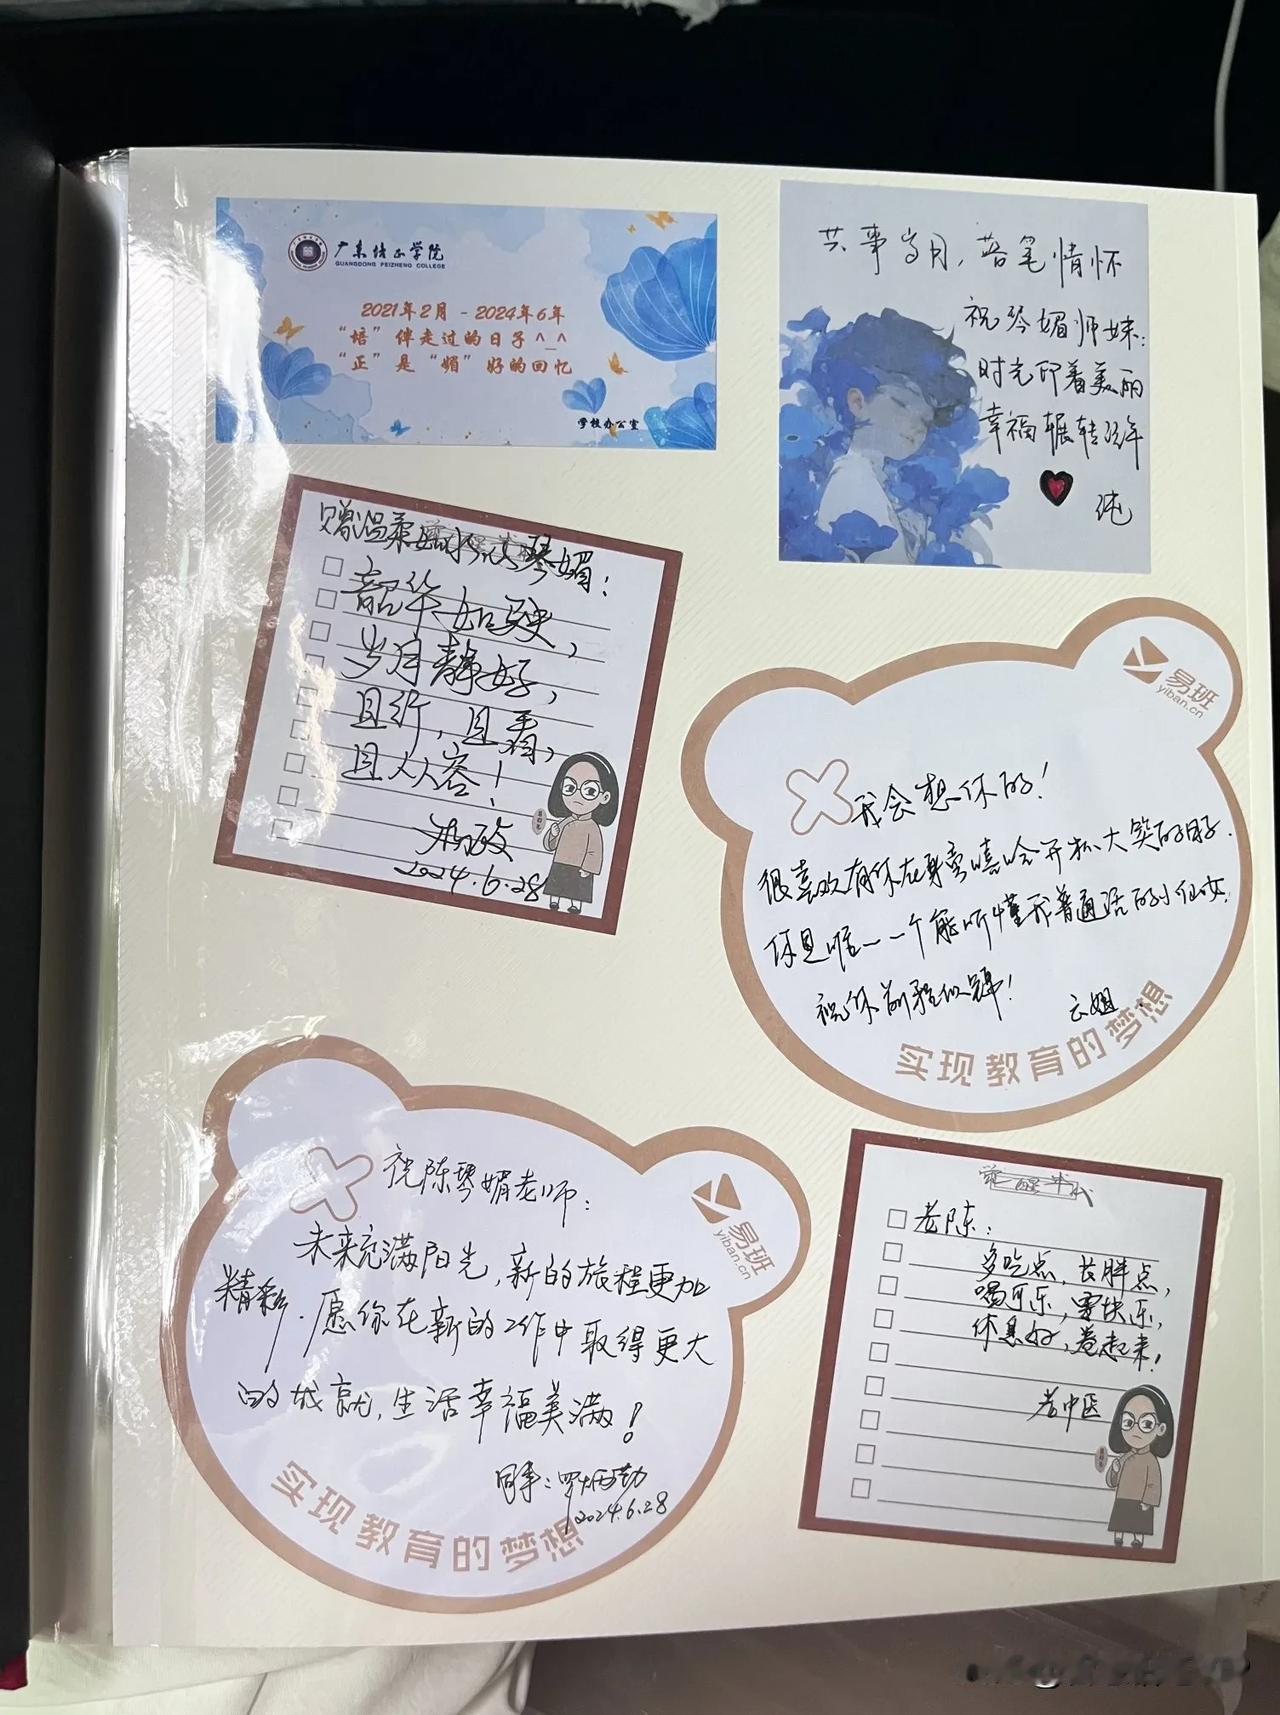 广东培正学院
GUANGDONG PEIZHENG COLLEGE
2021年2月 - 2024年6年
“培”伴走过的日子^_^
“正”是“媚”好的回忆
学校办公室
共事岁月，落笔情怀
祝琴媚师妹：
时光印着美丽
幸福辗转流年
纯
赠温柔 琴媚：
韶华如驶，
岁月静好，
且行，且看，
且从容！
2024.6.28
易班
yiban.cn
我会想你的！
很喜欢有你在身旁嘻哈开怀大笑的日子.
你是唯一一个能听懂我普通话的小仙女.
祝你前程似锦！
云姐
实现教育的梦想
易班
yiban.cn
祝陈琴媚老师：
未来充满阳光，新的旅程更加
精彩.愿你在新的工作中取得更大
的成就，生活幸福美满！
同事：罗炳勤
2024.6.28
实现教育的梦想
老陈：
多吃点，长胖点，
喝可乐，要快乐，
休息好，卷起来！
老中医